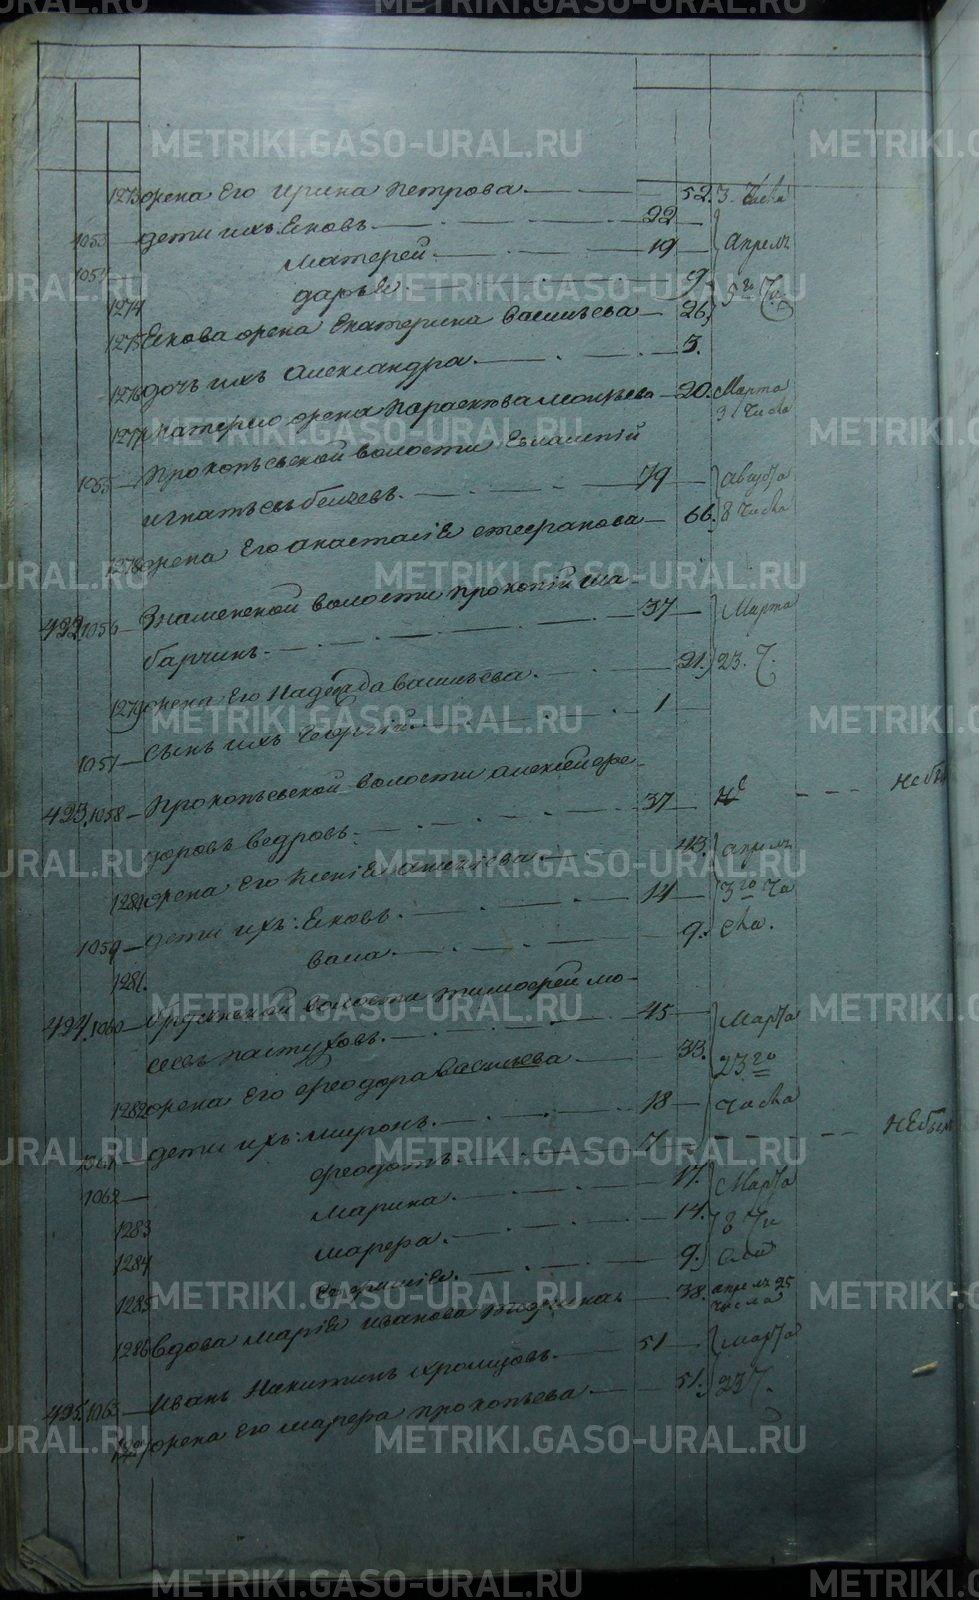 1273 жена Его Ирина Петрова 52. 3. Числа
1053 дети ихъ Яковъ 22
1054 Матфей 19 Апреля
1274 дарья 9 5го Чи
1275 Якова жена Екатерина васильева 26
1276 дочь ихъ Александра 3.
1277 Матфею жена Параскева 20. Марта
31 Числа
1055 Прокопьевской волости Евлампий
игнатьевъ 79 августа
1278 жена Его анастасія стефанова 66. 8 Числа
422 1056 Знаменской волости прокопій ша-
барчинъ 37 Марта
1279 жена Его Надежда васильева 21. 23. Ч.
1057 Сынъ ихъ Георгій 1
423. 1058 Прокопьевской волости алексей фе-
доровъ ведровъ 37 не не бы
1280 жена Его Ксенія 43. апреля
1059 дети ихъ: Яковъ 14 3го Чи
1281. васа 9. сла.
424. 1060 волости тимофей мо-
сеевъ пастуховъ 45 Марта
1282 жена Его феодора васильева 33. 23го
1061 дети ихъ: миронъ 18 Числа
1062 феодотъ 7 не бы
1283 Марина 17. Марта
1284 марфа 14. 8 Чи
1285 9. сла
1286 вдова Марія иванова 38. апреля 25
числа
425. 1063 Иванъ Никитинъ хромцовъ 51 Марта
жена Его марфа прокопьева 51. 23 Ч.
METRIKI.GASO-URAL.RU